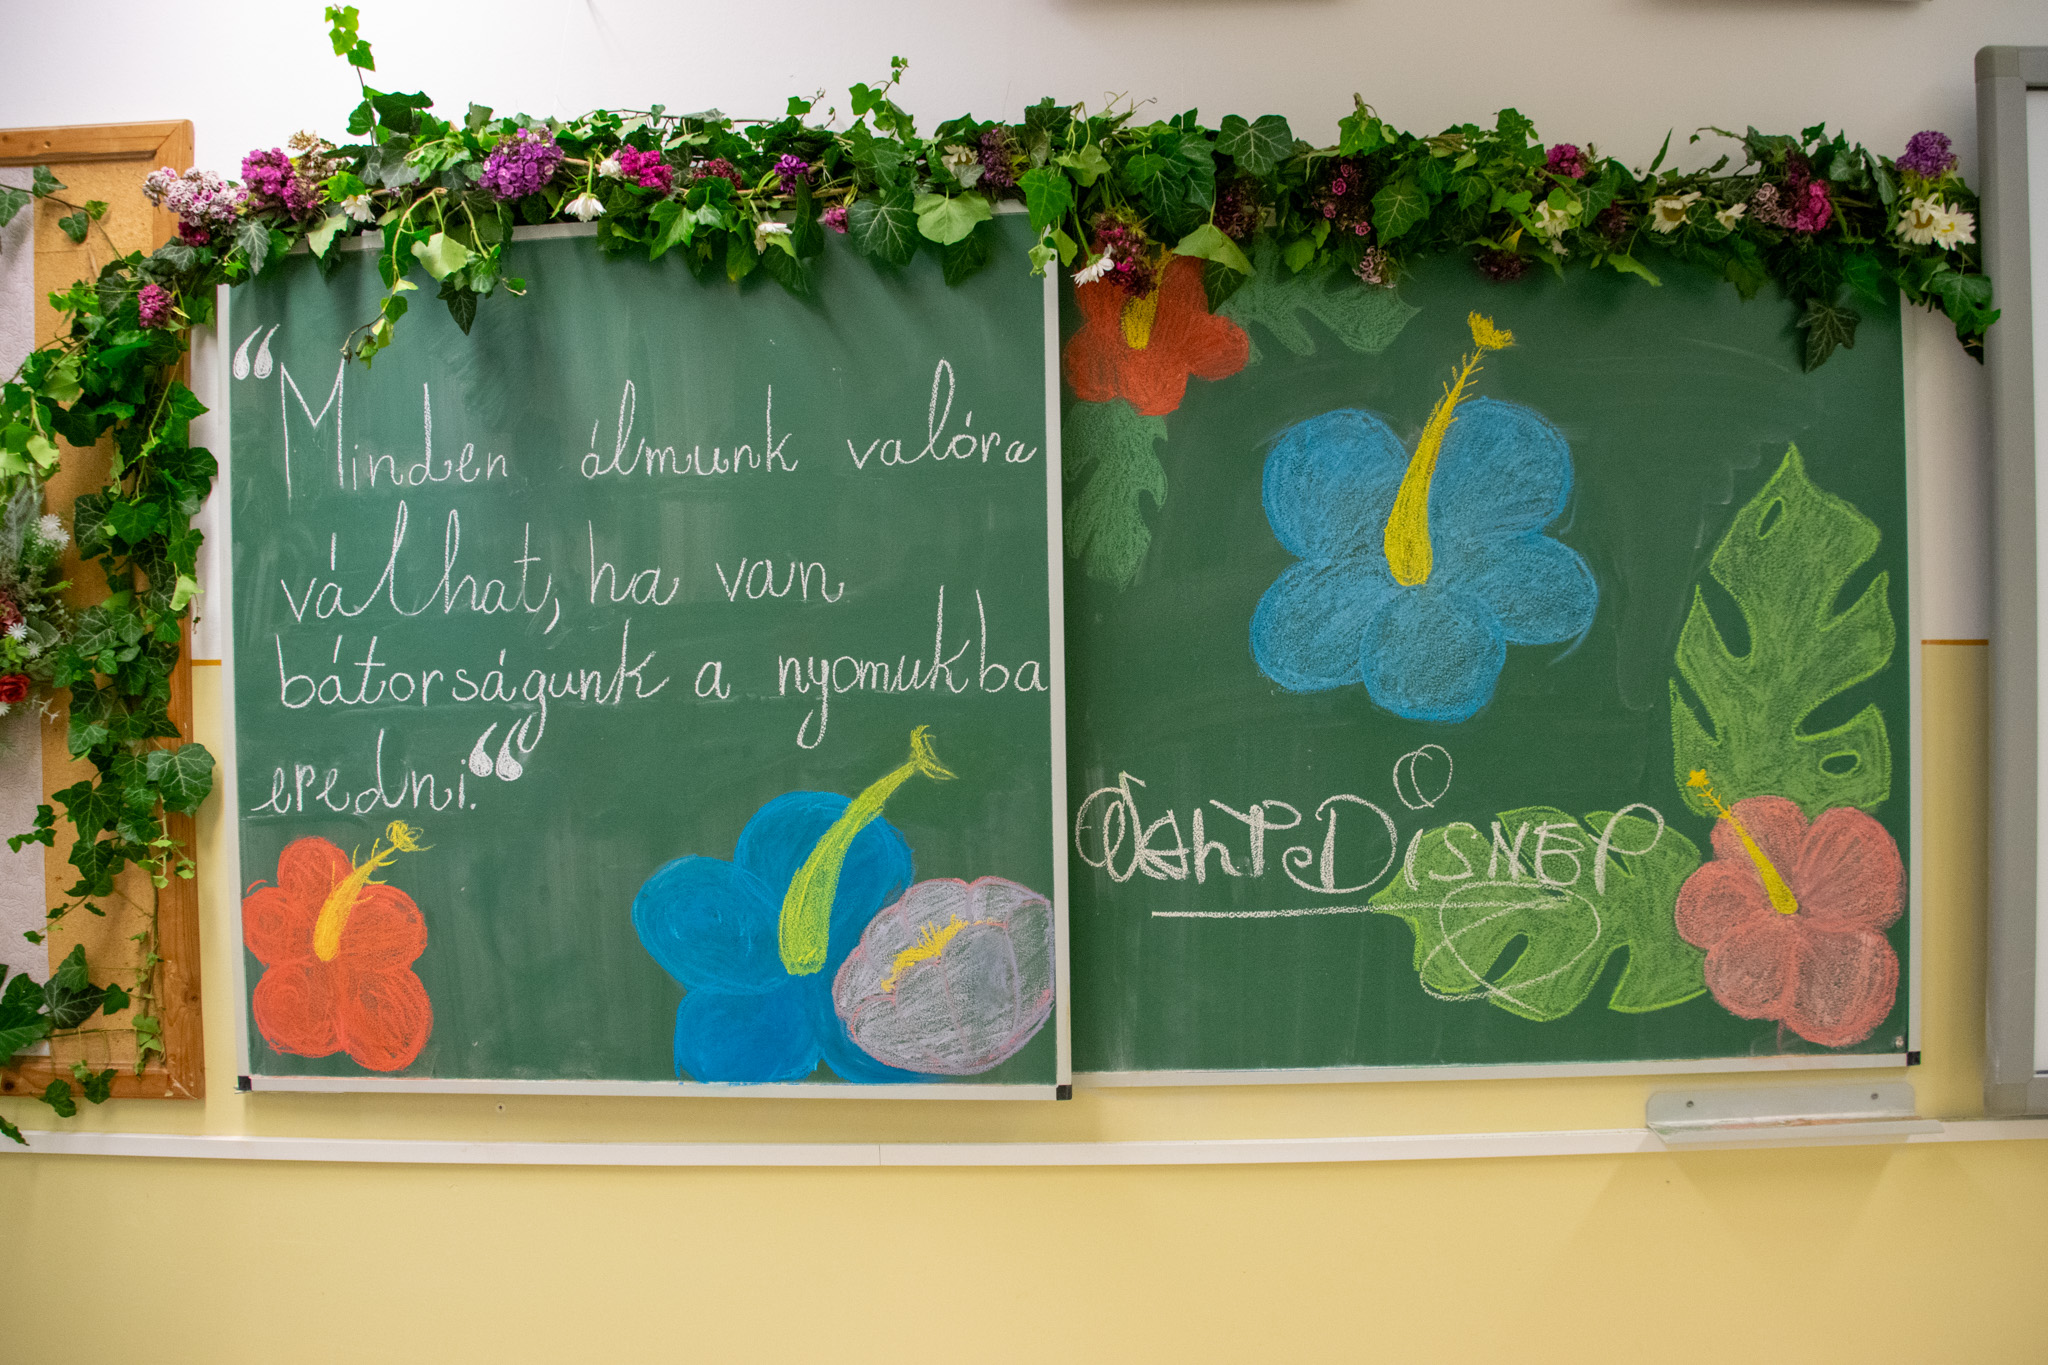 “Minden álmunk valóra
válhat, ha van
bátorságunk a nyomukba
eredni.“
Walt Disney